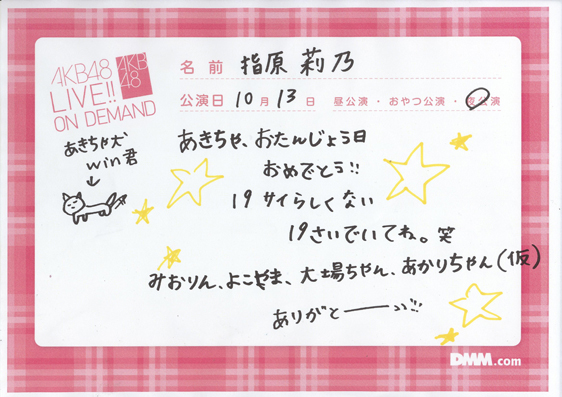 AKB48
LIVE!!
ON DEMAND
AKB
48
名前 指原莉乃
公演日 10月13日 昼公演・おやつ公演・夜公演
あきちゃ犬
win君
↓
あきちゃ、おたんじょう日
おめでとう!!
19サイらしくない
19さいでいてね。笑
みおりん、よこやま、大場ちゃん、あかりちゃん(仮)
ありがとーーう!!!
DMM.com